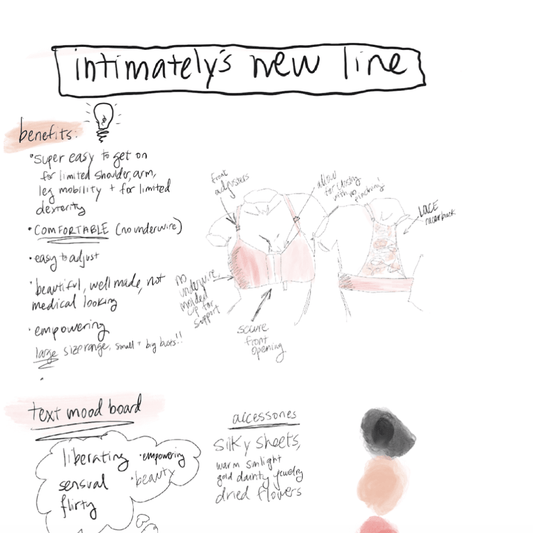 intimately's new line
benefits:
• super easy to get on
for limited shoulder, arm,
leg mobility + for limited
dexterity
• COMFORTABLE (no underwire)
• easy to adjust
• beautiful, well made, not
medical looking
• empowering
large size range, small + big busts!!
•
front
adjusters
allow
for
with no
pinching
LACE
racerback
no
underwire
molded
cup for
support
secure
front
opening
text mood board
liberating • empowering
sensual • beauty
flirty
accessories
silky sheets,
warm sunlight
gold dainty jewelry
dried flowers